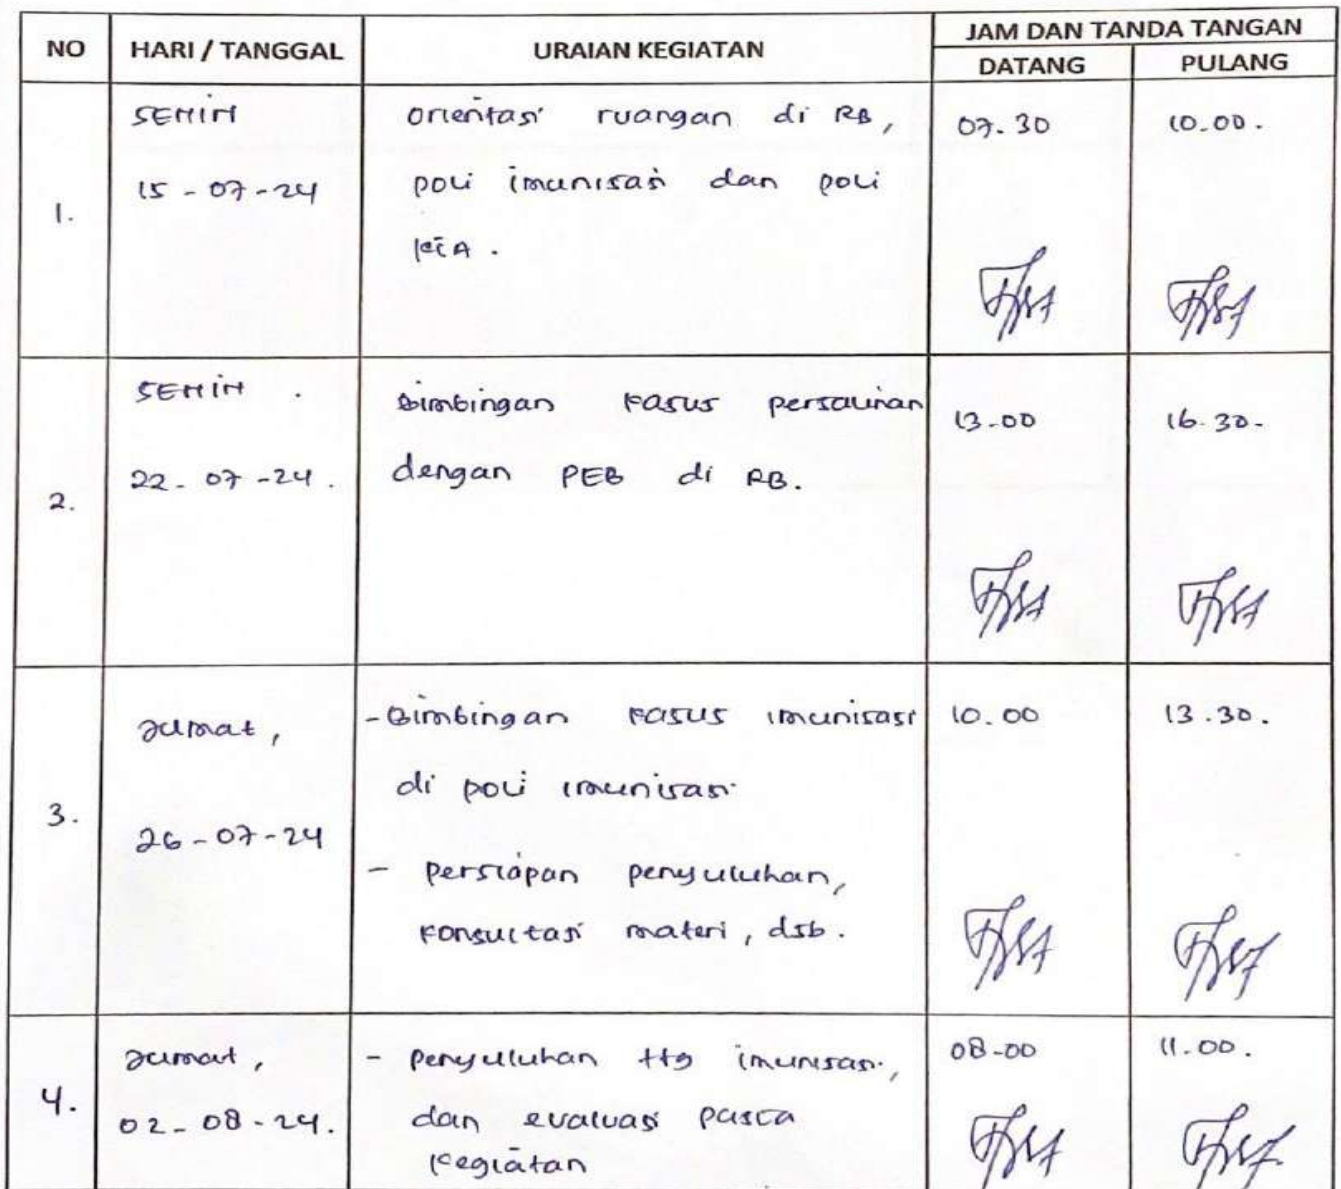 NO HARI / TANGGAL URAIAN KEGIATAN JAM DAN TANDA TANGAN
DATANG PULANG
1. SENIN 15-07-24
orientasi ruangan di RB,
poli imunisasi dan poli
KIA.
07.30 10.00.
2. SENIN. 22-07-24.
Bimbingan kasus persalinan
dengan PEB di RB.
13.00 16.30.
3. Jumat, 26-07-24
- Bimbingan kasus imunisasi
di poli imunisasi
- persiapan penyuluhan,
konsultasi materi, dsb.
10.00 13.30.
4. Jumat, 02-08-24.
- penyuluhan ttg imunisasi,
dan evaluasi pasca
kegiatan
08-00 11.00.